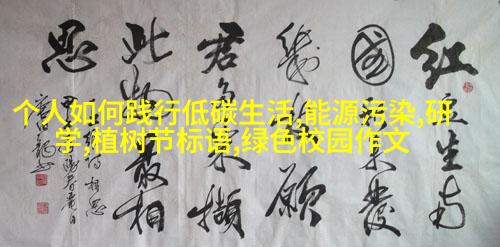 个人如何践行低碳生活,能源污染,研
学,植树节标语,绿色校园作文
红豆生南
國春来發
幾枝愿
君多采撷
此物最相
思